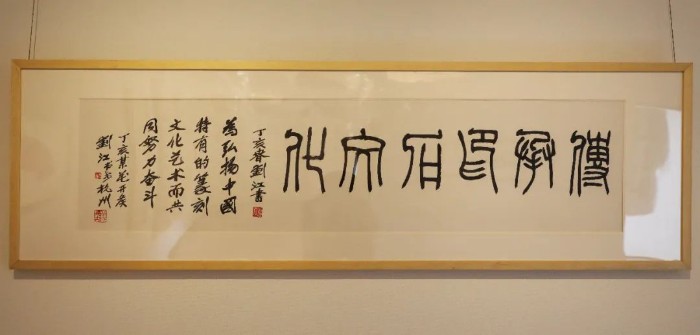 傳承印石文化
丁亥春劉江書
為弘揚中國
特有的篆刻
文化艺术而共
同努力奋斗
丁亥 花开
劉江书於杭州